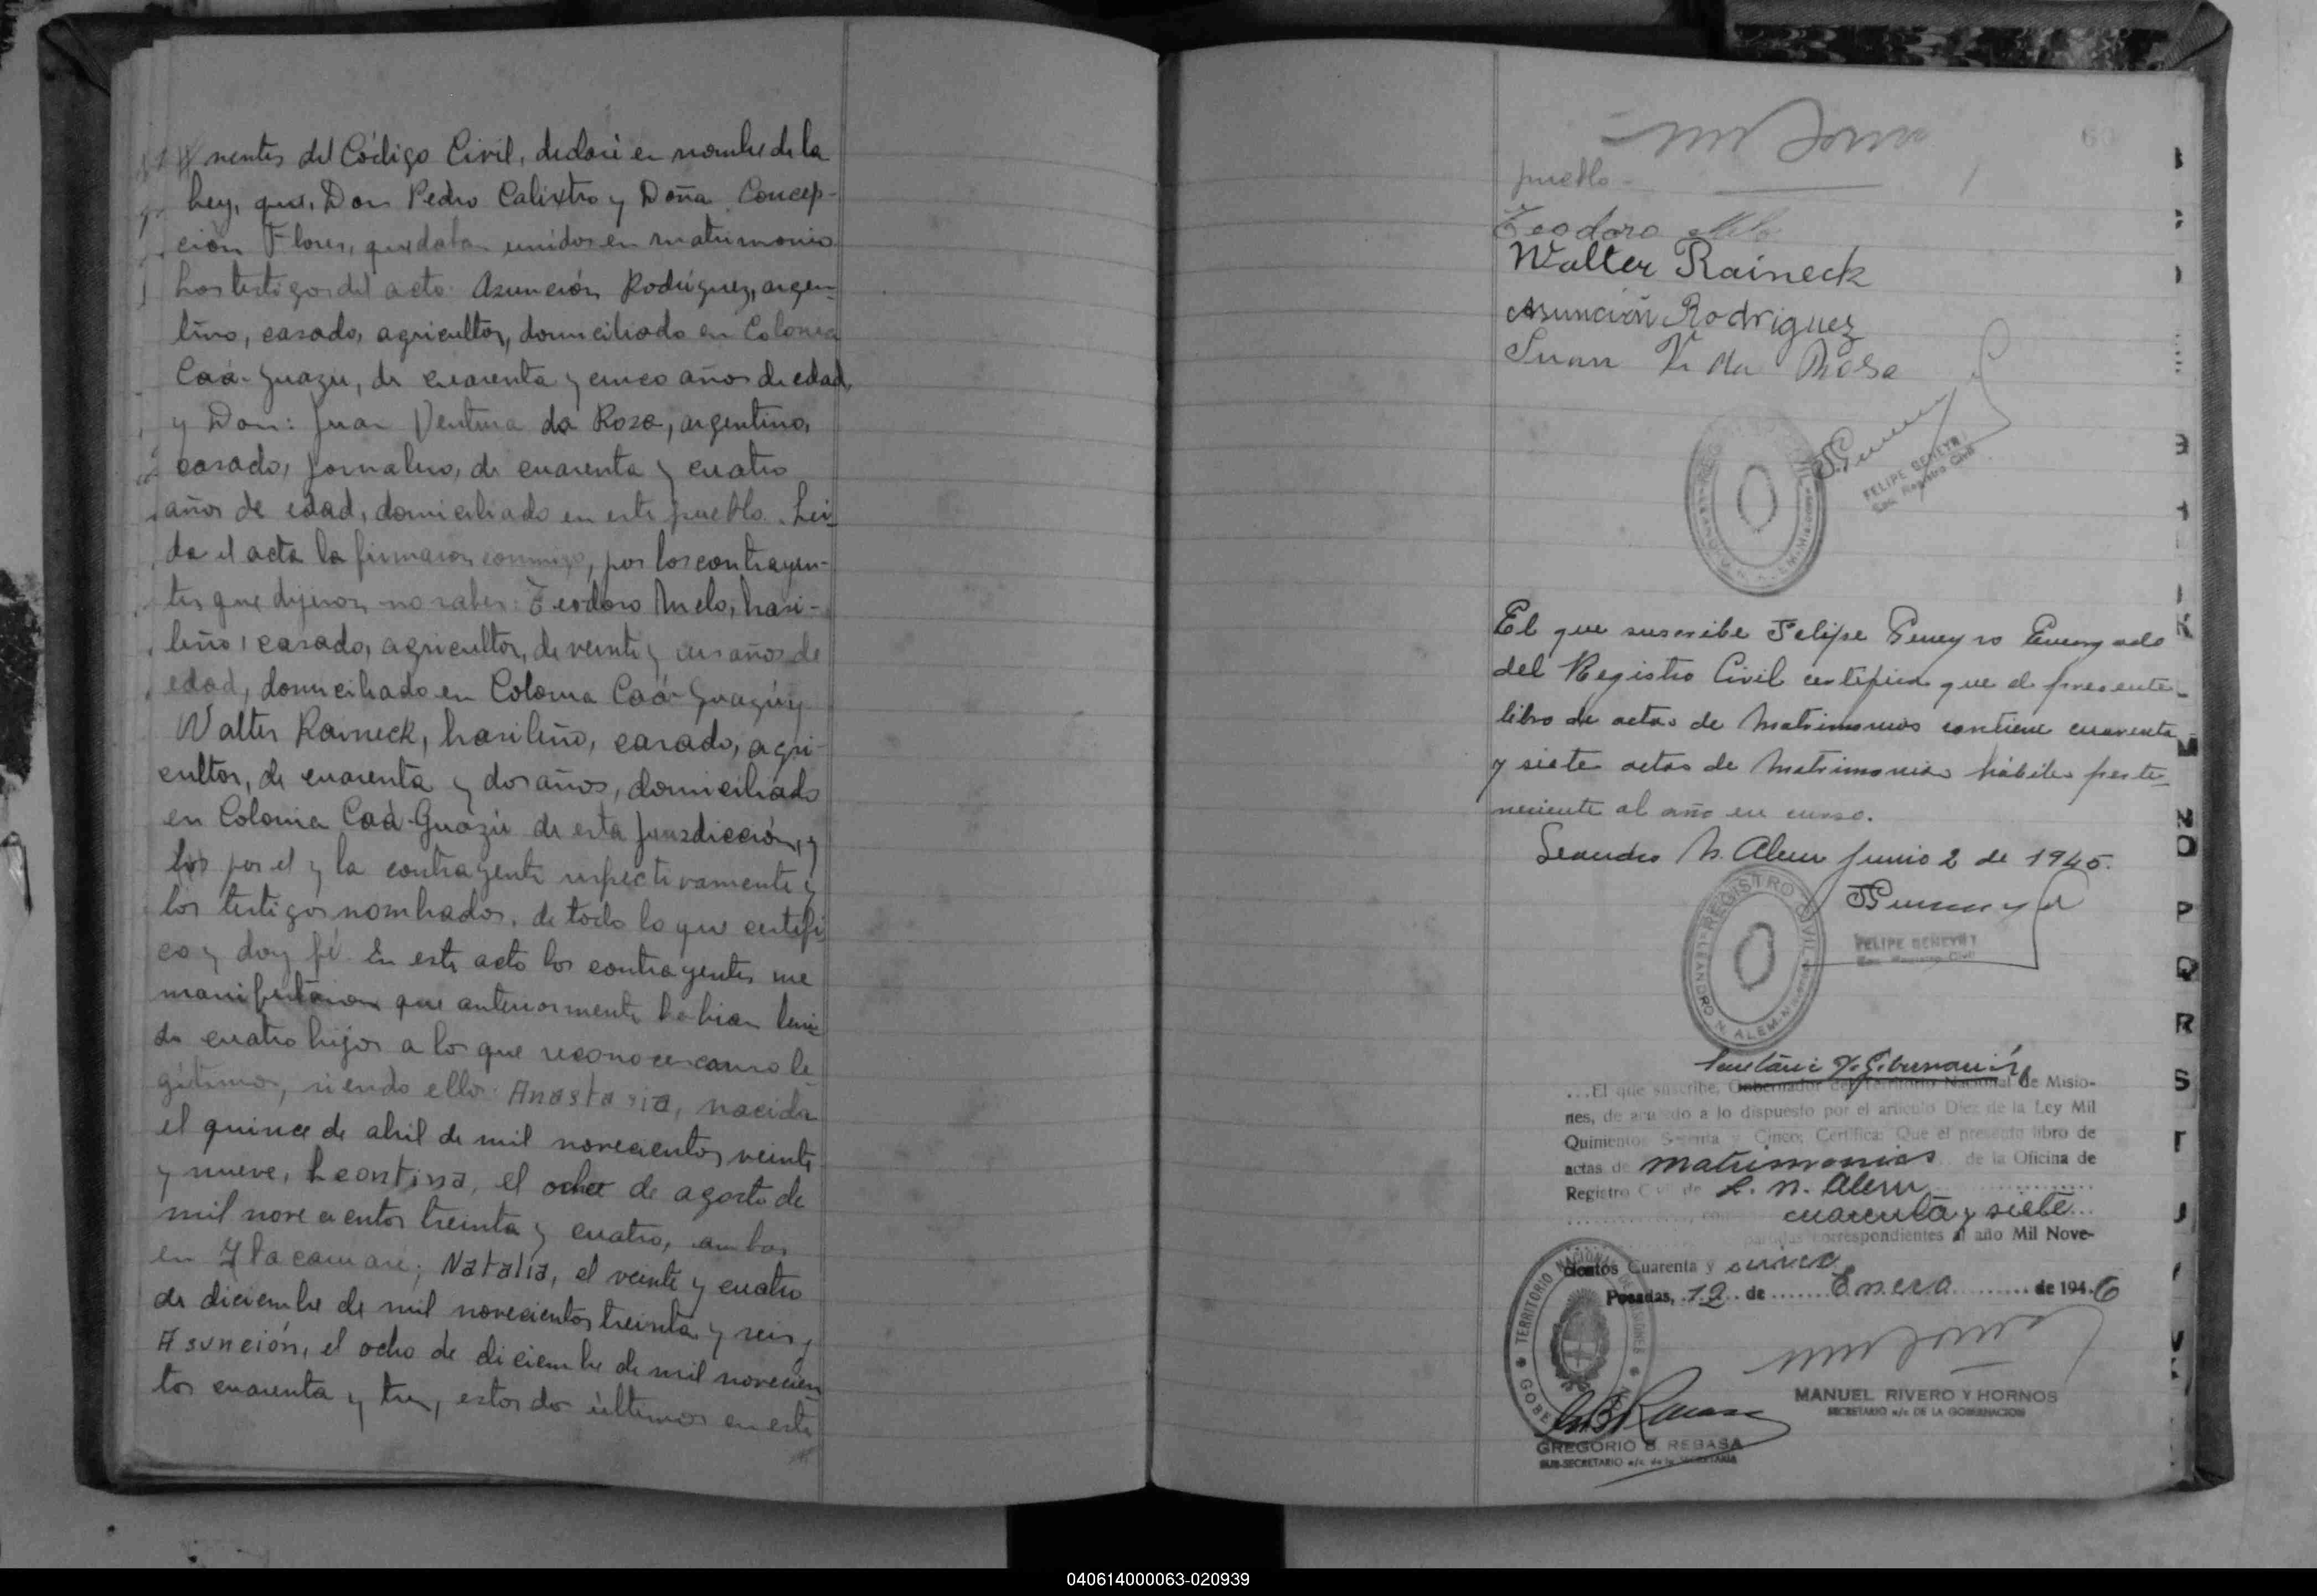 nentes del Código Civil, declaré en nombre de la
Ley, que, Don Pedro Calixtro y Doña Concep-
ción Flores, quedaban unidos en matrimonio
Los testigos del acto: Asunción Rodriguez, argen-
tino, casado, agricultor, domiciliado en Colonia
Caá-Guazu, de cuarenta y cinco años de edad,
y Don: Juan Ventura da Rosa, argentino,
casado, jornalero, de cuarenta y cuatro
años de edad, domiciliado en este pueblo. Leí-
da el acta la firmaron conmigo, por los contrayen-
tes que dijeron no saber: Teodoro Melo, brasi-
leño, casado, agricultor, de veinte y años de
edad, domiciliado en Colonia Caá-Guazú y
Walter Raineck, brasileño, casado, agri-
cultor, de cuarenta y dos años, domiciliado
en Colonia Caá-Guazú de esta jurisdicción, y
los por el y la contrayente respectivamente y
los testigos nombrados, de todo lo que certifi
co y doy fé. En este acto los contrayentes me
manifestaron que anteriormente habian teni
do cuatro hijos a los que reconocen como le
gítimos, siendo ellos: Anastasia, nacida
el quince de abril de mil novecientos veinte
y nueve, Leontina, el ocho de agosto de
mil novecientos treinta y cuatro, ambos
en Itacaruaré; Natalia, el veinte y cuatro
de diciembre de mil novecientos treinta y seis y
Asunción, el ocho de diciembre de mil novecien
tos cuarenta y tres, estos dos últimos en este
60
pueblo.-
Teodoro Melo
Walter Raineck
Asunción Rodriguez
Juan V. da Rosa
FELIPE GENEYRO
Enc. Registro Civil
El que suscribe Felipe Geneyro Encargado
del Registro Civil certifica que el presente
libro de actas de Matrimonios contiene cuarenta
y siete actas de Matrimonios hábiles perte-
neciente al año en curso.
Leandro N. Alem Junio 2 de 1945.
REGISTRO CIVIL
LEANDRO N. ALEM-Misiones
FELIPE GENEYRO
Enc. Registro Civil
Secretario de Gobernación
...El que suscribe, Gobernador del Territorio Nacional de Misio-
nes, de acuerdo a lo dispuesto por el artículo Diez de la Ley Mil
Quinientos Sesenta y Cinco; Certifica: Que el presente libro de
actas de matrimonios de la Oficina de
Registro Civil de L. N. Alem
cuarenta y siete
partidas correspondientes al año Mil Nove-
cientos Cuarenta y cinco
Posadas, 12 de Enero de 1946
TERRITORIO NACIONAL DE MISIONES
MANUEL RIVERO Y HORNOS
SECRETARIO a/c DE LA GOBERNACION
GREGORIO B. REBASA
SUB-SECRETARIO a/c de la SECRETARIA
K
M
N
O
P
Q
R
S
T
040614000063-020939